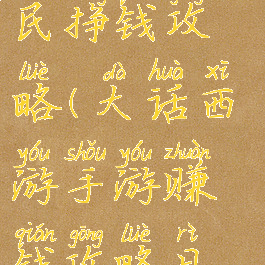 民挣钱攻
lüè dà huà xī
略(大话西
yóu shǒu yóu zhuàn
游手游赚
qián gōng lüè rì
钱攻略日